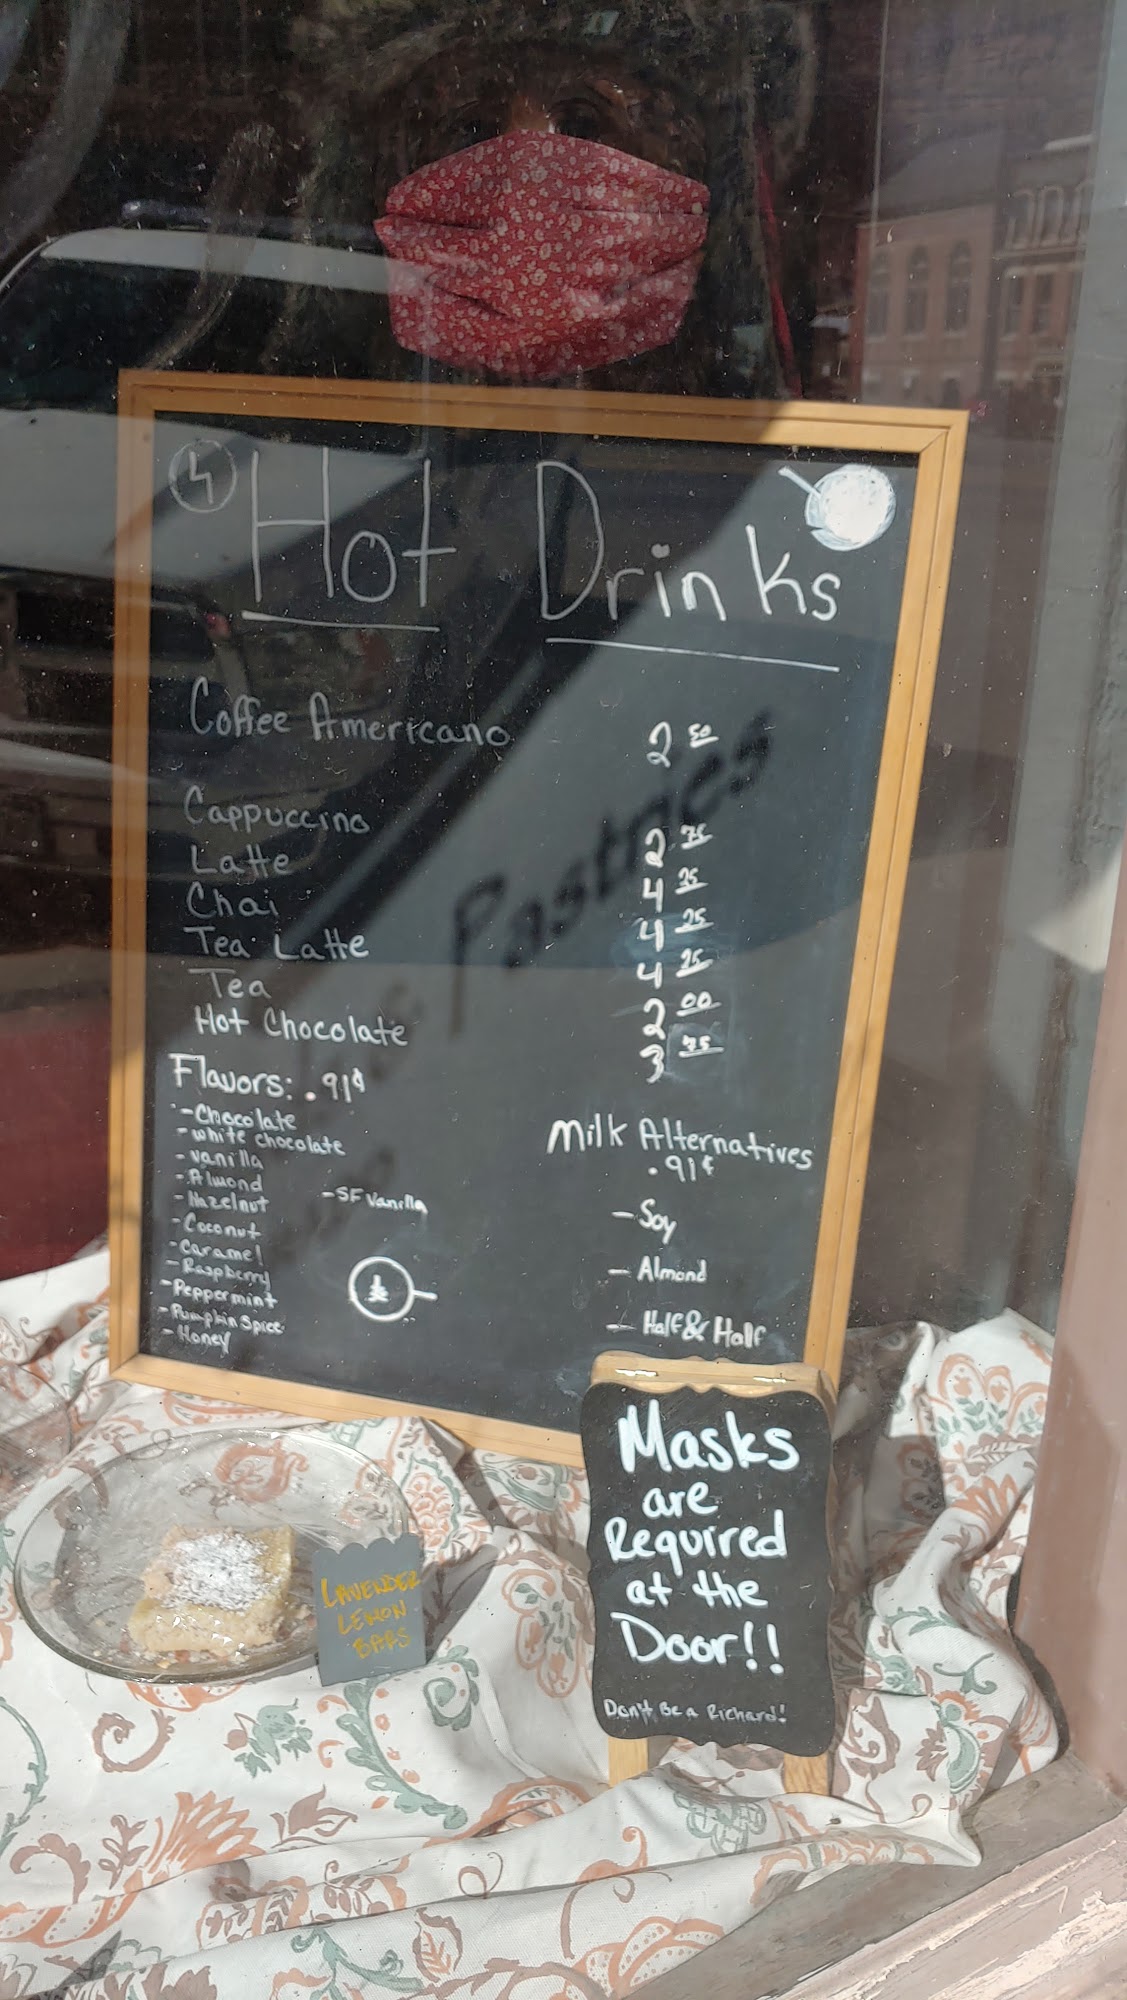 Hot Drinks
Coffee Americano 2 50
Cappuccino 2 75
Latte 4 25
Chai 4 25
Tea Latte 4 25
Tea 2 00
Hot Chocolate 3 75
Flavors: .91¢
-Chocolate
-white chocolate
-vanilla
-Almond
-Hazelnut
-SF Vanilla
-Coconut
-Caramel
-Raspberry
-Peppermint
-Pumpkin Spice
-Honey
Milk Alternatives
.91¢
-Soy
-Almond
-Half & Half
Pastries
LAVENDER
LEMON
BARS
Masks
are
Required
at the
Door!!
Don't Be a Richard!